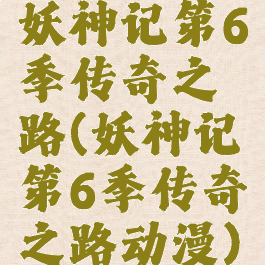 妖神记第6
季传奇之
路(妖神记
第6季传奇
之路动漫)